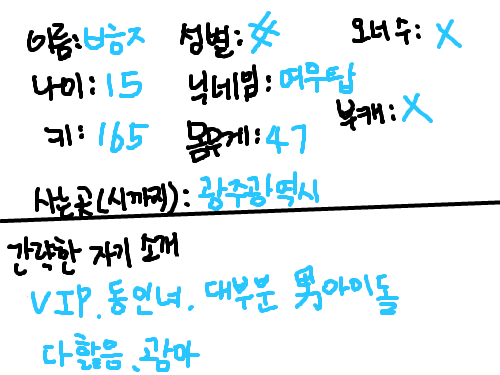 이름: 성별: 오너 수: X
나이: 15 닉네임: 여무탑
부캐: X
키: 165 몸무게: 47
사는곳(시까지): 광주광역시
간략한 자기 소개
VIP. 동인녀. 대부분 男아이돌
다 핥음.